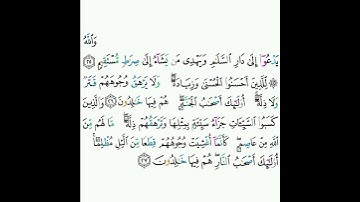 وَاللَّهُ
يَدْعُوٓا۟ إِلَىٰ دَارِ السَّلَٰمِ وَيَهْدِى مَن يَشَآءُ إِلَىٰ صِرَٰطٍ مُّسْتَقِيمٍ ٢٥
۞ لِّلَّذِينَ أَحْسَنُوا۟ الْحُسْنَىٰ وَزِيَادَةٌ ۖ وَلَا يَرْهَقُ وُجُوهَهُمْ قَتَرٌ
وَلَا ذِلَّةٌ ۚ أُو۟لَٰٓئِكَ أَصْحَٰبُ الْجَنَّةِ ۖ هُمْ فِيهَا خَٰلِدُونَ ٢٦ وَالَّذِينَ
كَسَبُوا۟ السَّيِّـَٔاتِ جَزَآءُ سَيِّئَةٍۭ بِمِثْلِهَا وَتَرْهَقُهُمْ ذِلَّةٌ ۖ مَّا لَهُم مِّنَ
اللَّهِ مِنْ عَاصِمٍ ۖ كَأَنَّمَآ أُغْشِيَتْ وُجُوهُهُمْ قِطَعًا مِّنَ الَّيْلِ مُظْلِمًا ۚ
أُو۟لَٰٓئِكَ أَصْحَٰبُ النَّارِ ۖ هُمْ فِيهَا خَٰلِدُونَ ٢٧